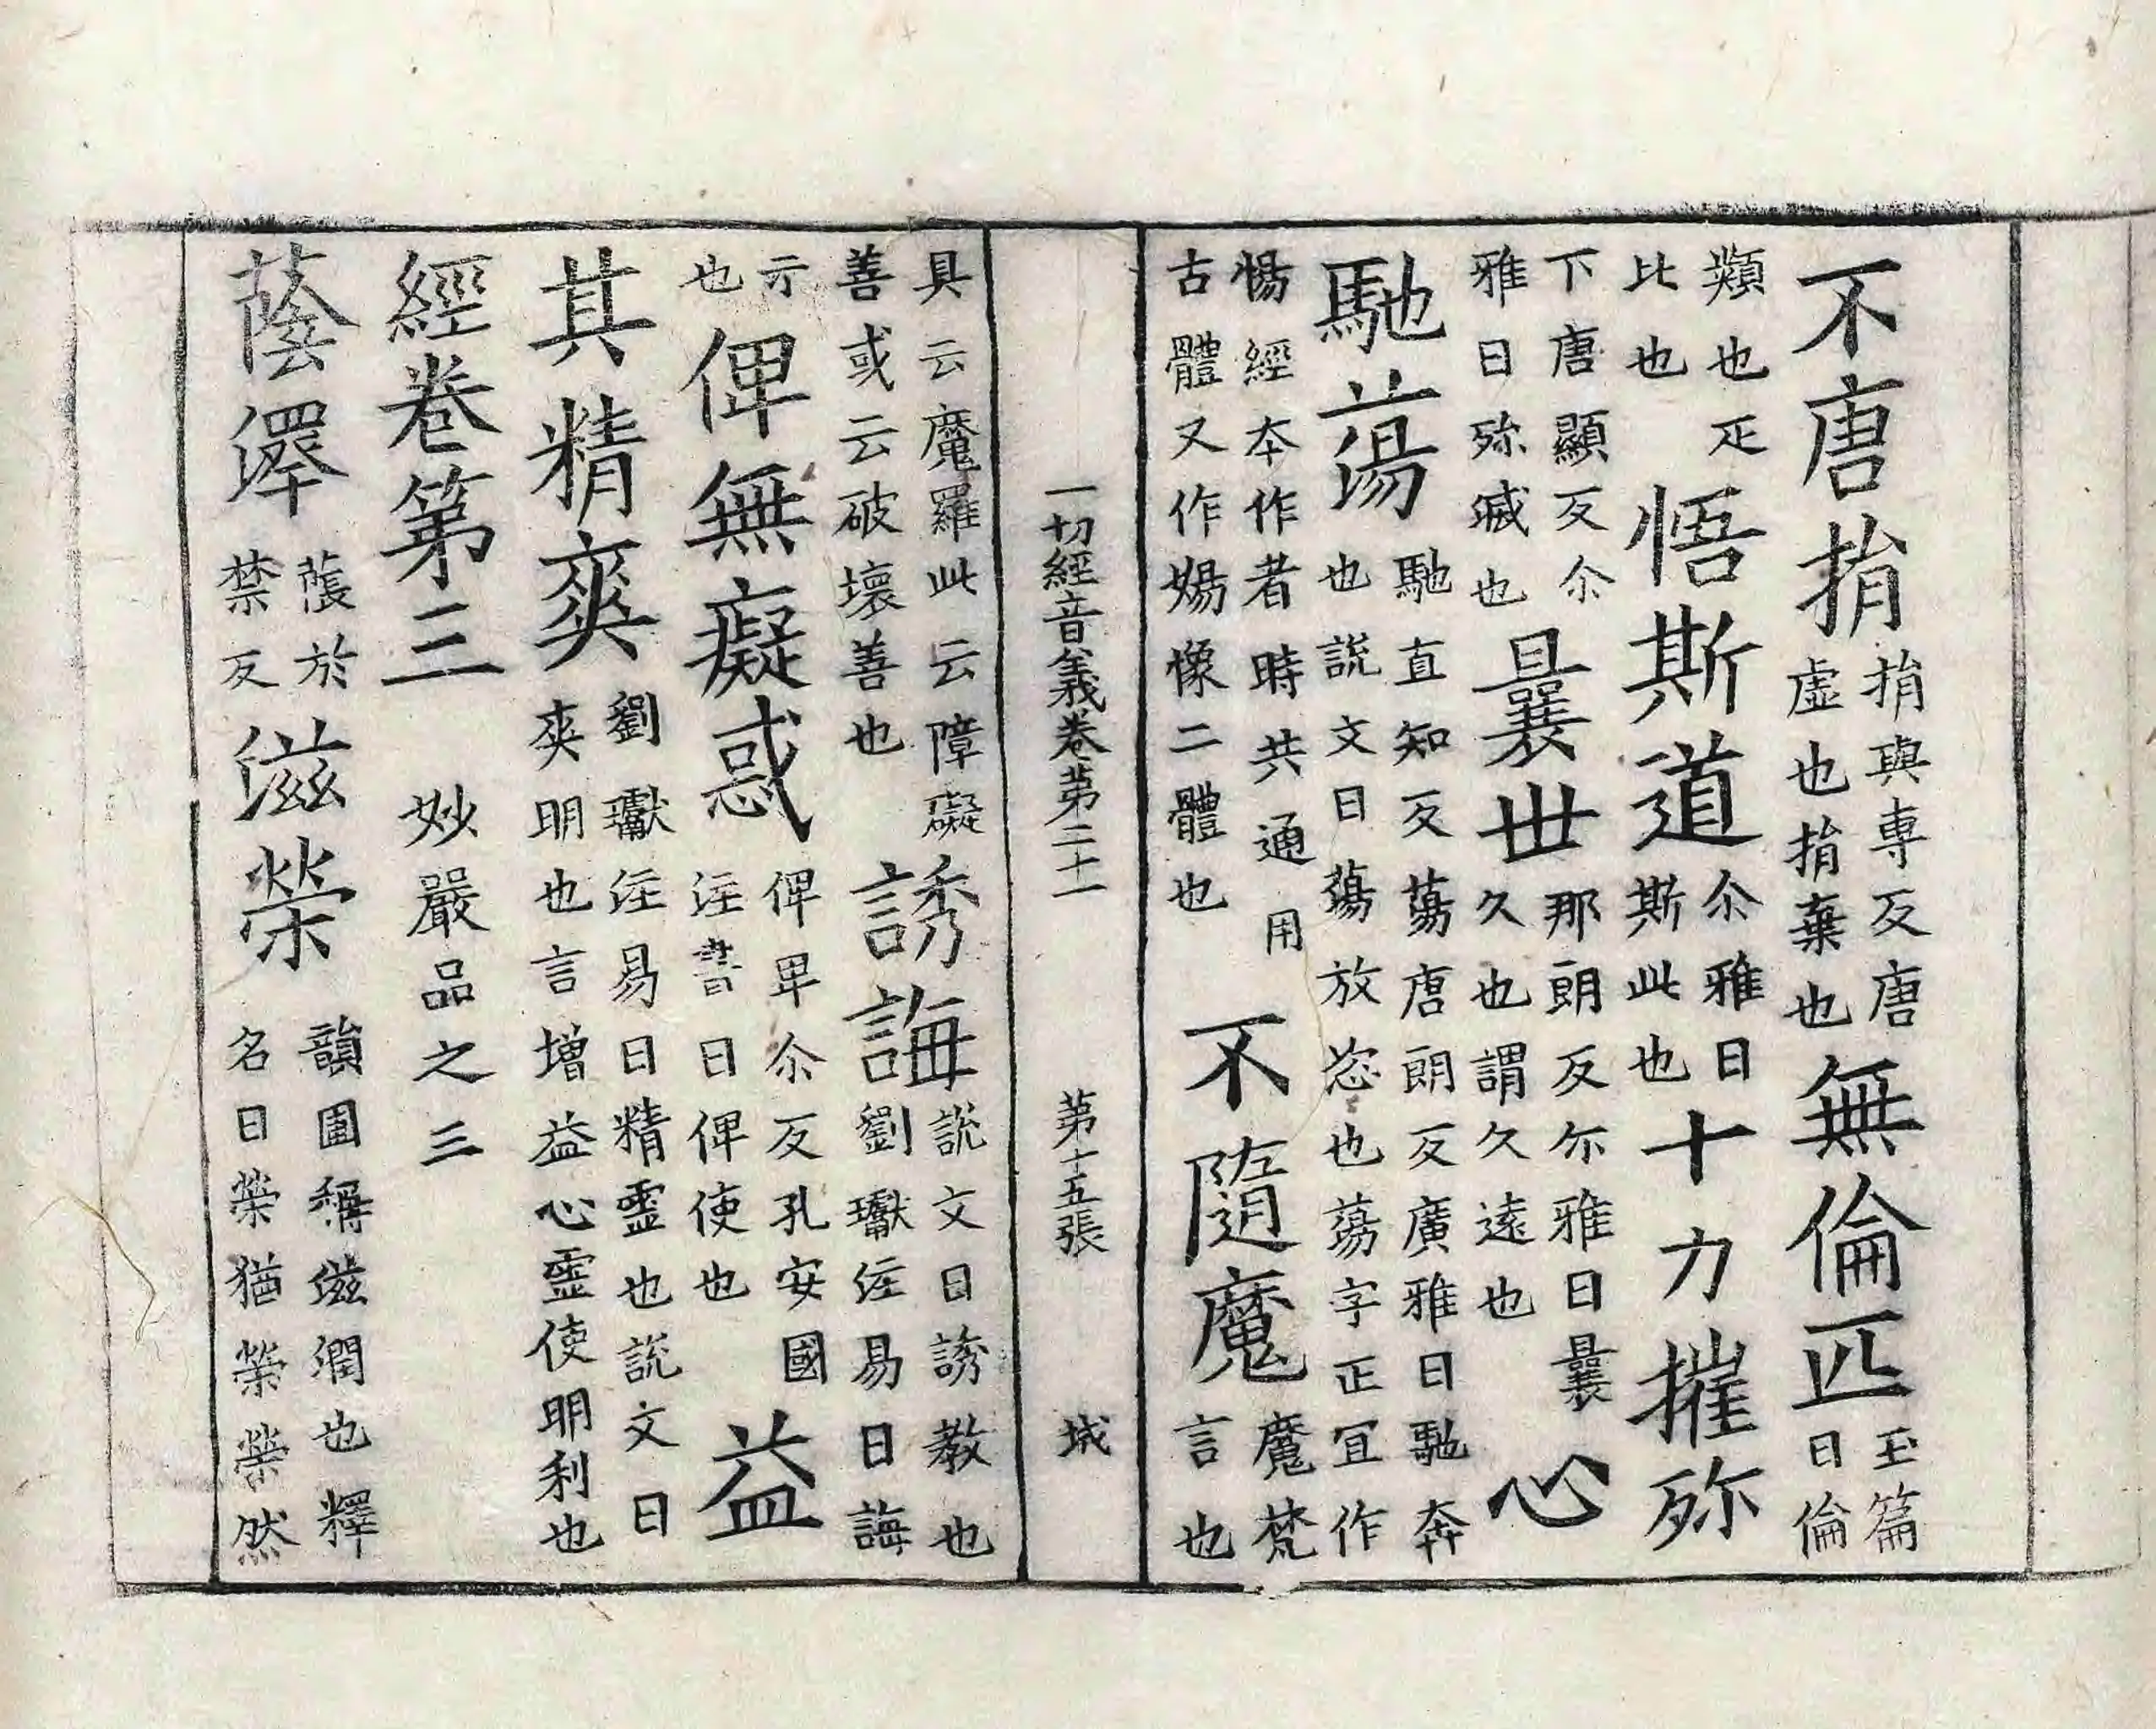 不唐捐捐與專反唐虛也捐棄也無倫匹玉篇曰倫
類也疋比也悟斯道尒雅曰斯此也十力摧殄
下唐顯反尒雅曰殄滅也曩世那朗反尓雅曰曩久也謂久遠也心
馳蕩馳直知反蕩唐朗反廣雅曰馳奔也說文曰蕩放恣也蕩字正宜作
愓經本作者時共通用古體又作婸像二體也不隨魔魔梵言也
一切經音義卷第二十一 第十五張 城
具云魔羅此云障礙善或云破壞善也誘誨說文曰誘教也劉瓛注易曰誨
示也俾無癡惑俾卑尒反孔安國注書曰俾使也益
其精爽劉瓛注易曰精靈也說文曰爽明也言增益心靈使明利也
經卷第三 妙嚴品之三
蔭澤蔭於禁反滋榮韻圃稱滋潤也釋名曰榮猶榮榮然